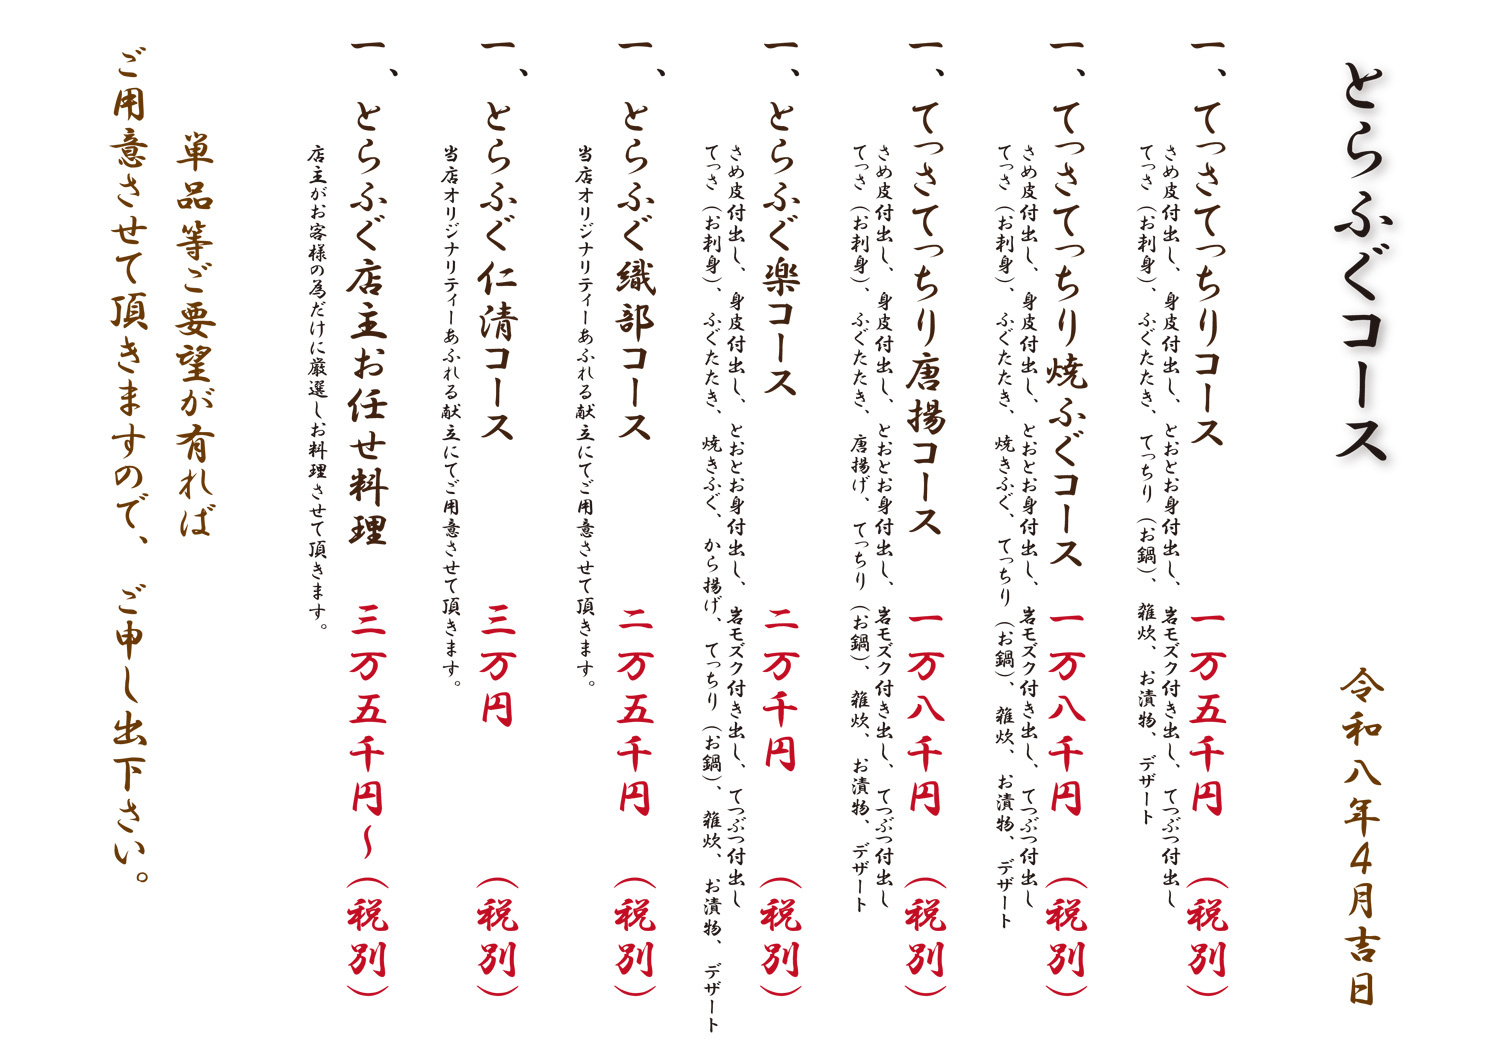 とらふぐコース
令和八年4月吉日
一、てっさてっちりコース 一万五千円（税別）
さめ皮付出し、身皮付出し、とおとお身付出し、岩モズク付き出し、てつぶつ付出し
てっさ（お刺身）、ふぐたたき、てっちり（お鍋）、雑炊、お漬物、デザート
一、てっさてっちり焼ふぐコース 一万八千円（税別）
さめ皮付出し、身皮付出し、とおとお身付出し、岩モズク付き出し、てつぶつ付出し
てっさ（お刺身）、ふぐたたき、焼きふぐ、てっちり（お鍋）、雑炊、お漬物、デザート
一、てっさてっちり唐揚コース 一万八千円（税別）
さめ皮付出し、身皮付出し、とおとお身付出し、岩モズク付き出し、てつぶつ付出し
てっさ（お刺身）、ふぐたたき、唐揚げ、てっちり（お鍋）、雑炊、お漬物、デザート
一、とらふぐ楽コース 二万千円（税別）
さめ皮付出し、身皮付出し、とおとお身付出し、岩モズク付き出し、てつぶつ付出し
てっさ（お刺身）、ふぐたたき、焼きふぐ、から揚げ、てっちり（お鍋）、雑炊、お漬物、デザート
一、とらふぐ織部コース 二万五千円（税別）
当店オリジナリティーあふれる献立にてご用意させて頂きます。
一、とらふぐ仁清コース 三万円（税別）
当店オリジナリティーあふれる献立にてご用意させて頂きます。
一、とらふぐ店主お任せ料理 三万五千円～（税別）
店主がお客様の為だけに厳選しお料理させて頂きます。
単品等ご要望が有れば
ご用意させて頂きますので、ご申し出下さい。